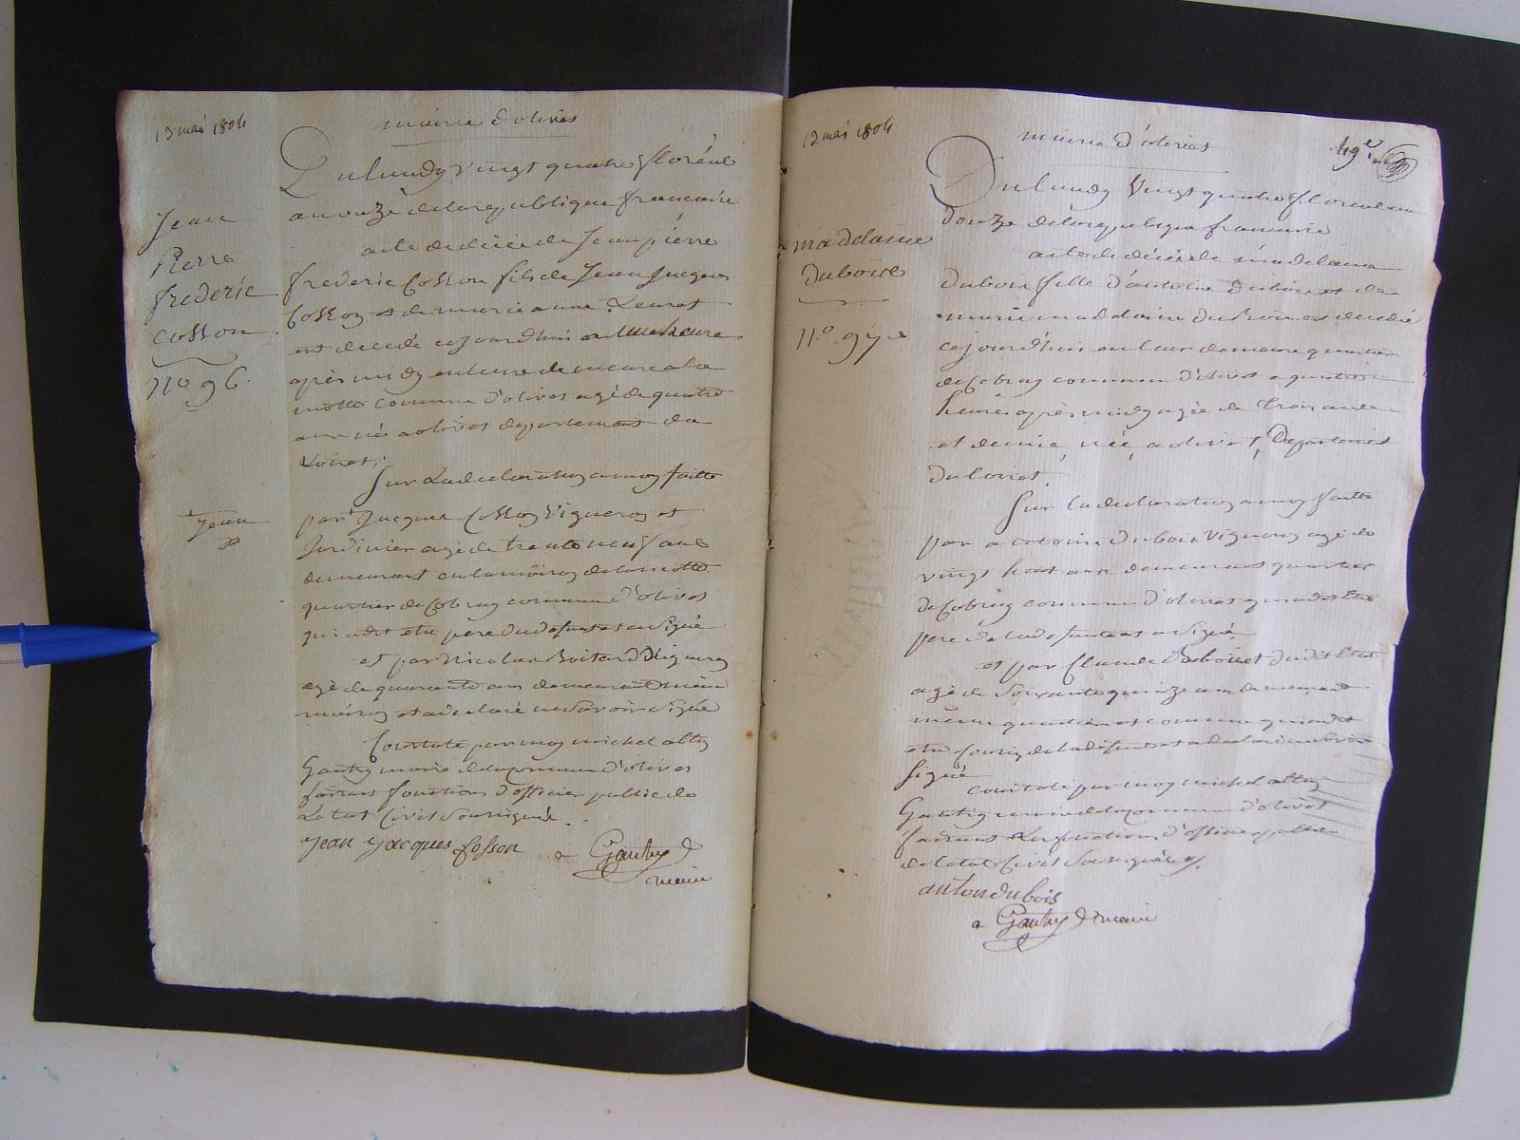 13 mai 1804
mairie d'olivet
Du lundy vingt quatre floréal
an onze de la republique francaise
Jean
Pierre
frederic
Cosson
n° 96.
acte de décès de Jean pierre
frederic Cosson fils de Jean Jacques
Cosson et de marie anne
est decedé cejourdhui
après midy en leure demeure a la
motte commune d'olivet agé de quatre
ans né a olivet departement du
Loiret.
Sur la declaration a moy faitte
Jean
par Jacques Cosson Vigneron et
Jardinier agé de trente neuf ans
demeurant en la maison de la motte
quartier de Cobray commune d'olivet
qui a dit etre pere du defunt et a signé
et par Nicolas Boitard Vigneron
agé de quarante ans demeurant même
maison et a declaré ne savoir signé
Constaté par moy michel
Gautry maire de la commune d'olivet
faisant fonctions d'officier public de
Letat Civil Soussigné.
Jean Jacques Cosson
Gautry
maire
13 mai 1804
mairie d'olivet
49e
Du lundy Vingt quatre floreal an
douze de la republique francaise
madelaine
Duboies
n°. 97
acte de décès de madelaine
Dubois fille d'antoine Dubois et de
marie madelaine decedé
cejourd'hui en leur demeure quartier
de Cobray commune d'olivet a quatre
heures après midy agée de trois ans
et demie, née a olivet, Departement
du Loiret.
Sur la declaration a moy faitte
par antoine Dubois Vigneron agé de
vingt huit ans demeurant quartier
de Cobray commune d'olivet qui a dit Etre
pere de la defunte et a signé
et par Claude
agé de soixante quinze ans demeurant
même quartier et commune qui a dit
etre cousin de la defunte et a declaré ne savoir
signé
Constaté par moy michel
Gautry maire de la commune d'olivet
faisant les fonctions d'officier public
de l'etat Civil Soussigné
antoin dubois
Gautry maire